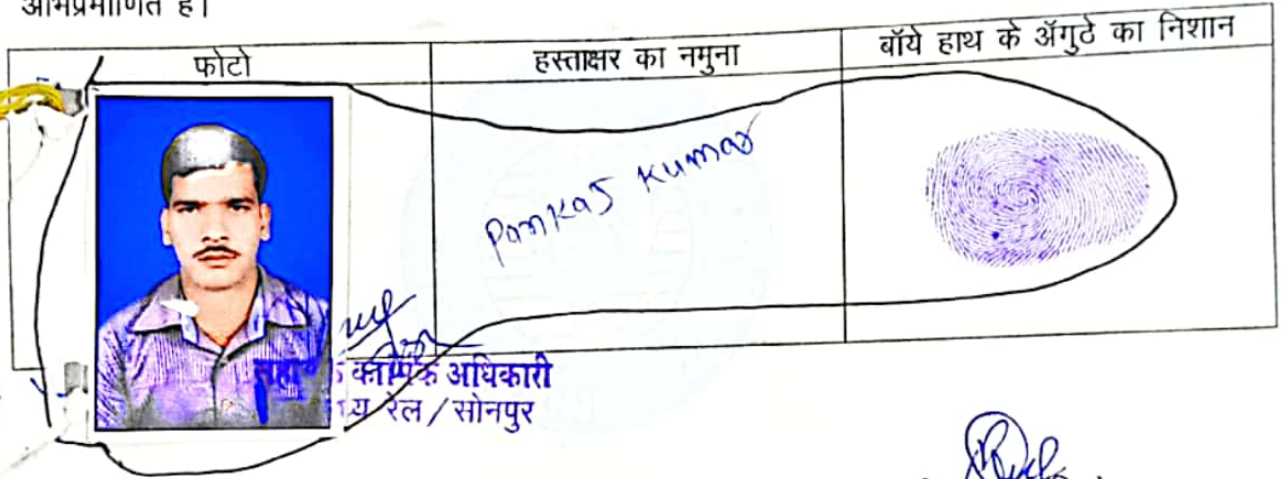 अभिप्रमाणित है।
फोटो
हस्ताक्षर का नमुना
बॉये हाथ के अँगुठे का निशान
Pankaj Kumar
कार्मिक अधिकारी
रेल / सोनपुर